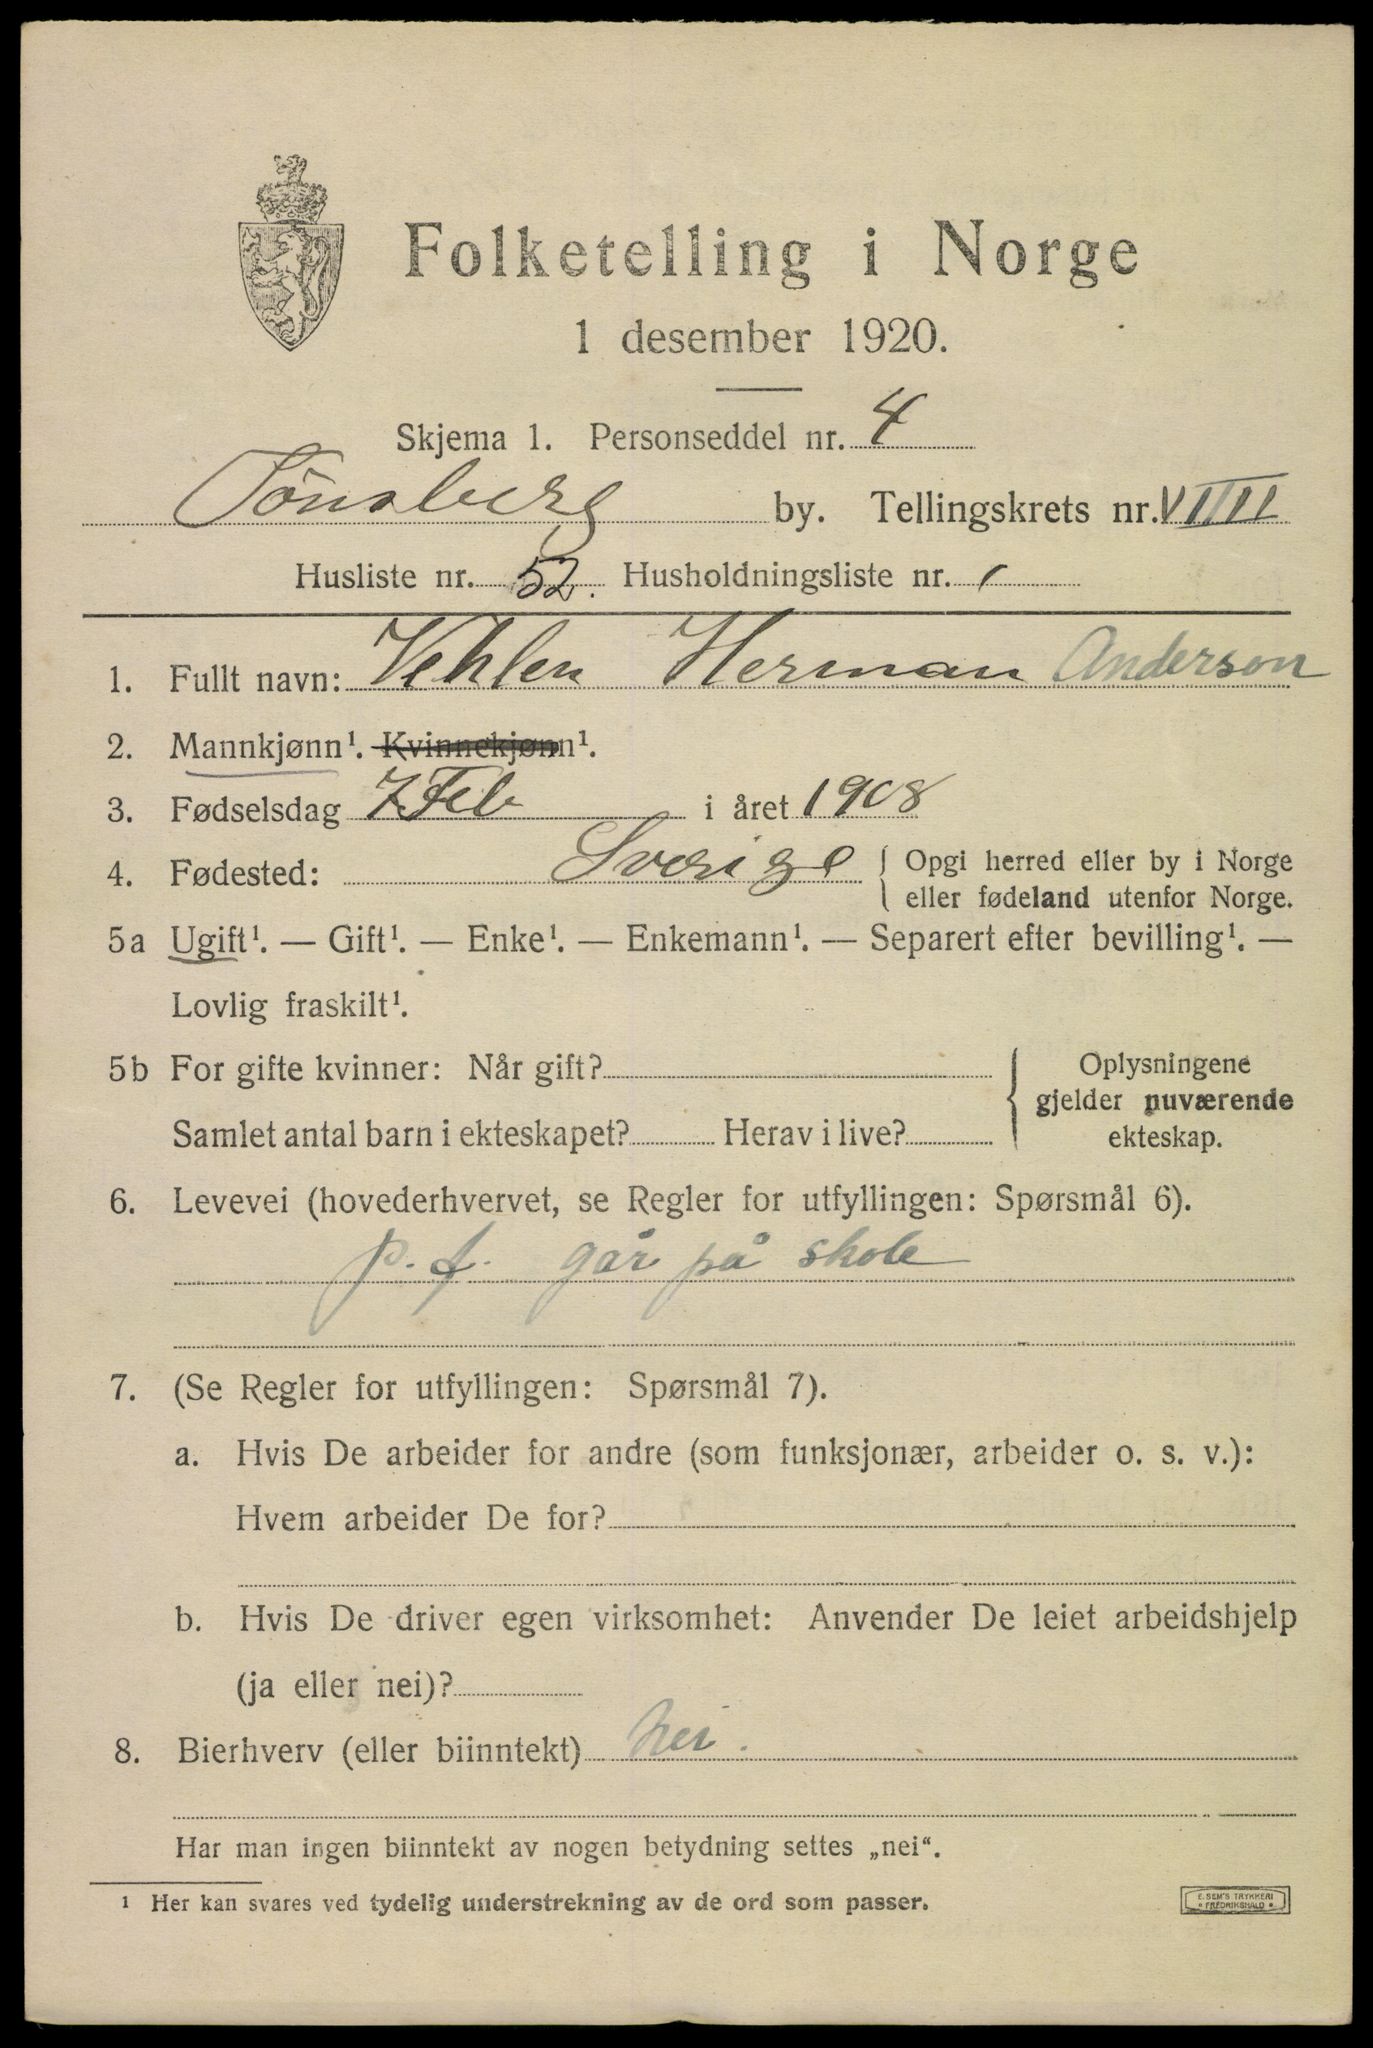 Folketelling i Norge
1 desember 1920.
Skjema 1. Personseddel nr. 4
Tönsberg by. Tellingskrets nr. VIIII
Husliste nr. 52. Husholdningsliste nr. 1
1. Fullt navn: Vehlen Herman Anderson
2. Mannkjønn¹. Kvinnekjønn¹.
3. Fødselsdag 7 Feb i året 1908
4. Fødested: Sverige { Opgi herred eller by i Norge
eller fødeland utenfor Norge.
5a Ugift¹. — Gift¹. — Enke¹. — Enkemann¹. — Separert efter bevilling¹. —
Lovlig fraskilt¹.
5b For gifte kvinner: Når gift?
Samlet antal barn i ekteskapet? Herav i live?
Oplysningene
gjelder nuværende
ekteskap.
6. Levevei (hovederhvervet, se Regler for utfyllingen: Spørsmål 6).
p. f. går på skole
7. (Se Regler for utfyllingen: Spørsmål 7).
a. Hvis De arbeider for andre (som funksjonær, arbeider o. s. v.):
Hvem arbeider De for?
b. Hvis De driver egen virksomhet: Anvender De leiet arbeidshjelp
(ja eller nei)?
8. Bierhverv (eller biinntekt) Nei.
Har man ingen biinntekt av nogen betydning settes „nei“.
¹ Her kan svares ved tydelig understrekning av de ord som passer.
E. SEM'S TRYKKERI
* FREDRIKSHALD *